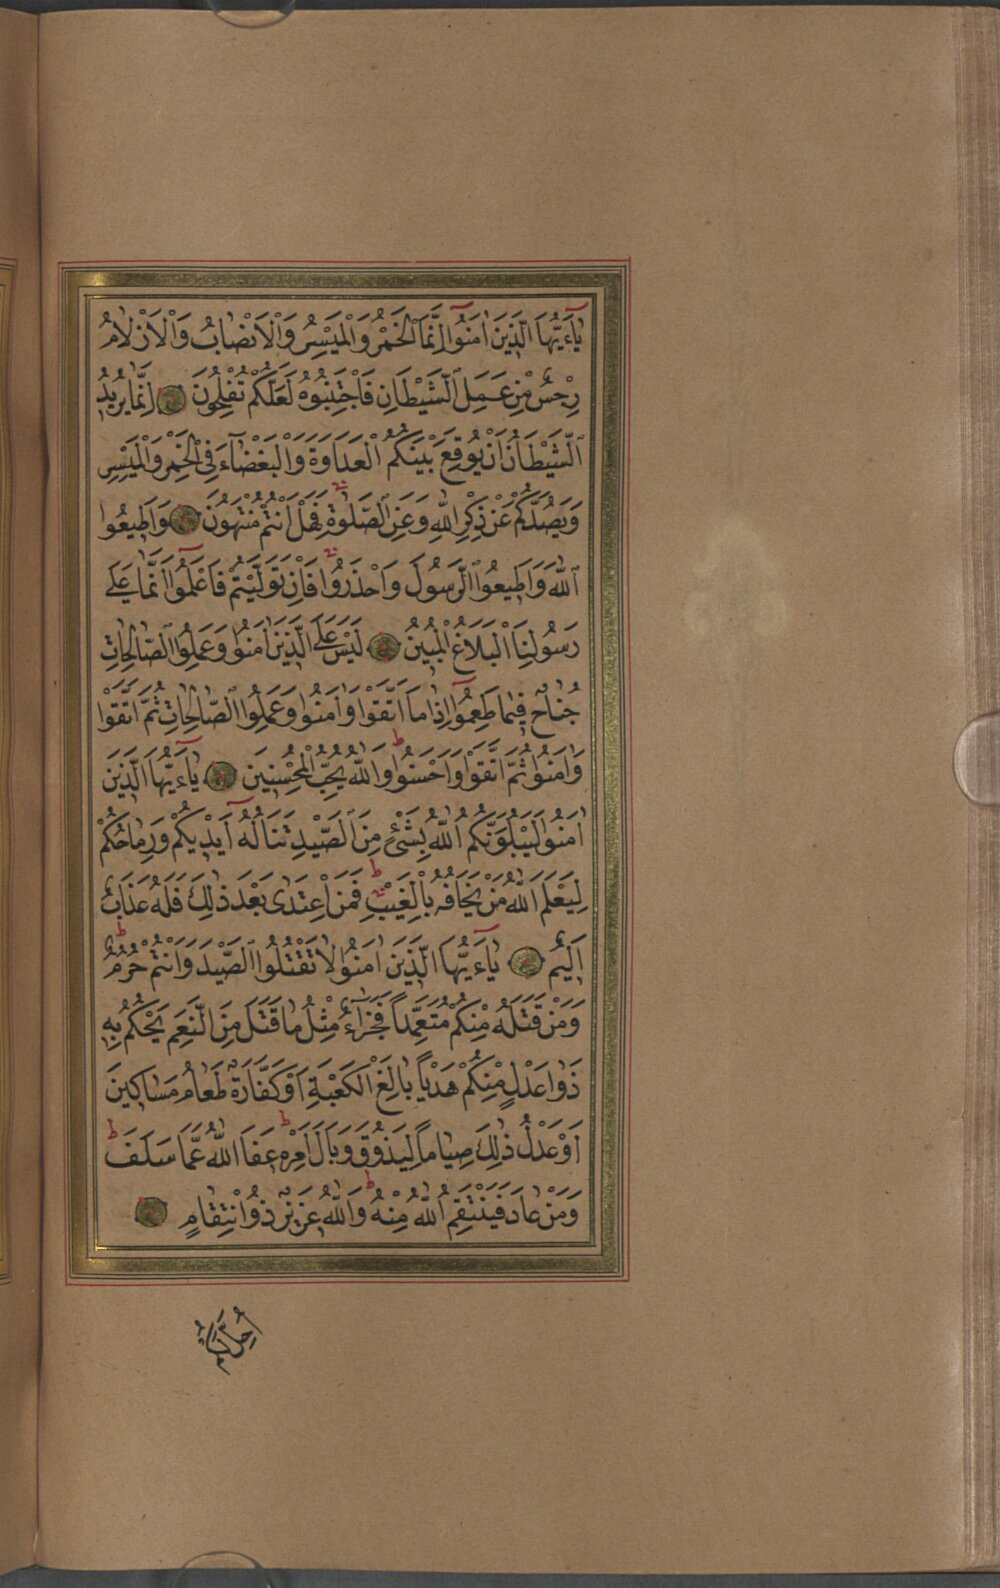 يَآءَيُّهَا الَّذِينَ اٰمَنُوا اِنَّمَا الْخَمْرُ وَالْمَيْسِرُ وَالْاَنْصَابُ وَالْاَزْلَامُ
رِجْسٌ مِنْ عَمَلِ الشَّيْطَانِ فَاجْتَنِبُوهُ لَعَلَّكُمْ تُفْلِحُونَ اِنَّمَا يُرِيدُ
الشَّيْطَانُ اَنْ يُوقِعَ بَيْنَكُمُ الْعَدَاوَةَ وَالْبَغْضَآءَ فِي الْخَمْرِ وَالْمَيْسِرِ
وَيَصُدَّكُمْ عَنْ ذِكْرِ اللّٰهِ وَعَنِ الصَّلٰوةِ فَهَلْ اَنْتُمْ مُنْتَهُونَ وَاَطِيعُوا
اللّٰهَ وَاَطِيعُوا الرَّسُولَ وَاحْذَرُوا فَاِنْ تَوَلَّيْتُمْ فَاعْلَمُوا اَنَّمَا عَلٰى
رَسُولِنَا الْبَلَاغُ الْمُبِينُ لَيْسَ عَلَى الَّذِينَ اٰمَنُوا وَعَمِلُوا الصَّالِحَاتِ
جُنَاحٌ فِيمَا طَعِمُوا اِذَا مَا اتَّقَوْا وَاٰمَنُوا وَعَمِلُوا الصَّالِحَاتِ ثُمَّ اتَّقَوْا
وَاٰمَنُوا ثُمَّ اتَّقَوْا وَاَحْسَنُوا وَاللّٰهُ يُحِبُّ الْمُحْسِنِينَ يَآءَيُّهَا الَّذِينَ
اٰمَنُوا لَيَبْلُوَنَّكُمُ اللّٰهُ بِشَيْءٍ مِنَ الصَّيْدِ تَنَالُهُ اَيْدِيكُمْ وَرِمَاحُكُمْ
لِيَعْلَمَ اللّٰهُ مَنْ يَخَافُهُ بِالْغَيْبِ فَمَنِ اعْتَدٰى بَعْدَ ذٰلِكَ فَلَهُ عَذَابٌ
اَلِيمٌ يَآءَيُّهَا الَّذِينَ اٰمَنُوا لَا تَقْتُلُوا الصَّيْدَ وَاَنْتُمْ حُرُمٌ
وَمَنْ قَتَلَهُ مِنْكُمْ مُتَعَمِّدًا فَجَزَآءٌ مِثْلُ مَا قَتَلَ مِنَ النَّعَمِ يَحْكُمُ بِهِ
ذَوَا عَدْلٍ مِنْكُمْ هَدْيًا بَالِغَ الْكَعْبَةِ اَوْ كَفَّارَةٌ طَعَامُ مَسَاكِينَ
اَوْ عَدْلُ ذٰلِكَ صِيَامًا لِيَذُوقَ وَبَالَ اَمْرِهِ عَفَا اللّٰهُ عَمَّا سَلَفَ
وَمَنْ عَادَ فَيَنْتَقِمُ اللّٰهُ مِنْهُ وَاللّٰهُ عَزِيزٌ ذُو انْتِقَامٍ
اُحِلَّ لَكُمْ